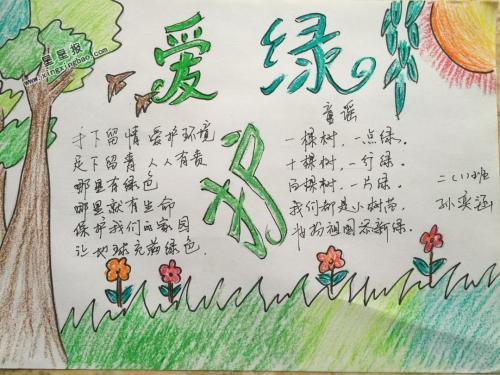 星星报
www.xingxingbao.com
爱绿
手下留情 爱护环境
足下留青 人人有责
哪里有绿色
哪里就有生命
保护我们的家园
让地球充满绿色.
童谣
一棵树，一点绿.
十棵树，一行绿.
百棵树，一片绿.
我们都是小树苗.
祖国添新绿.
二(1)班
孙奕涵